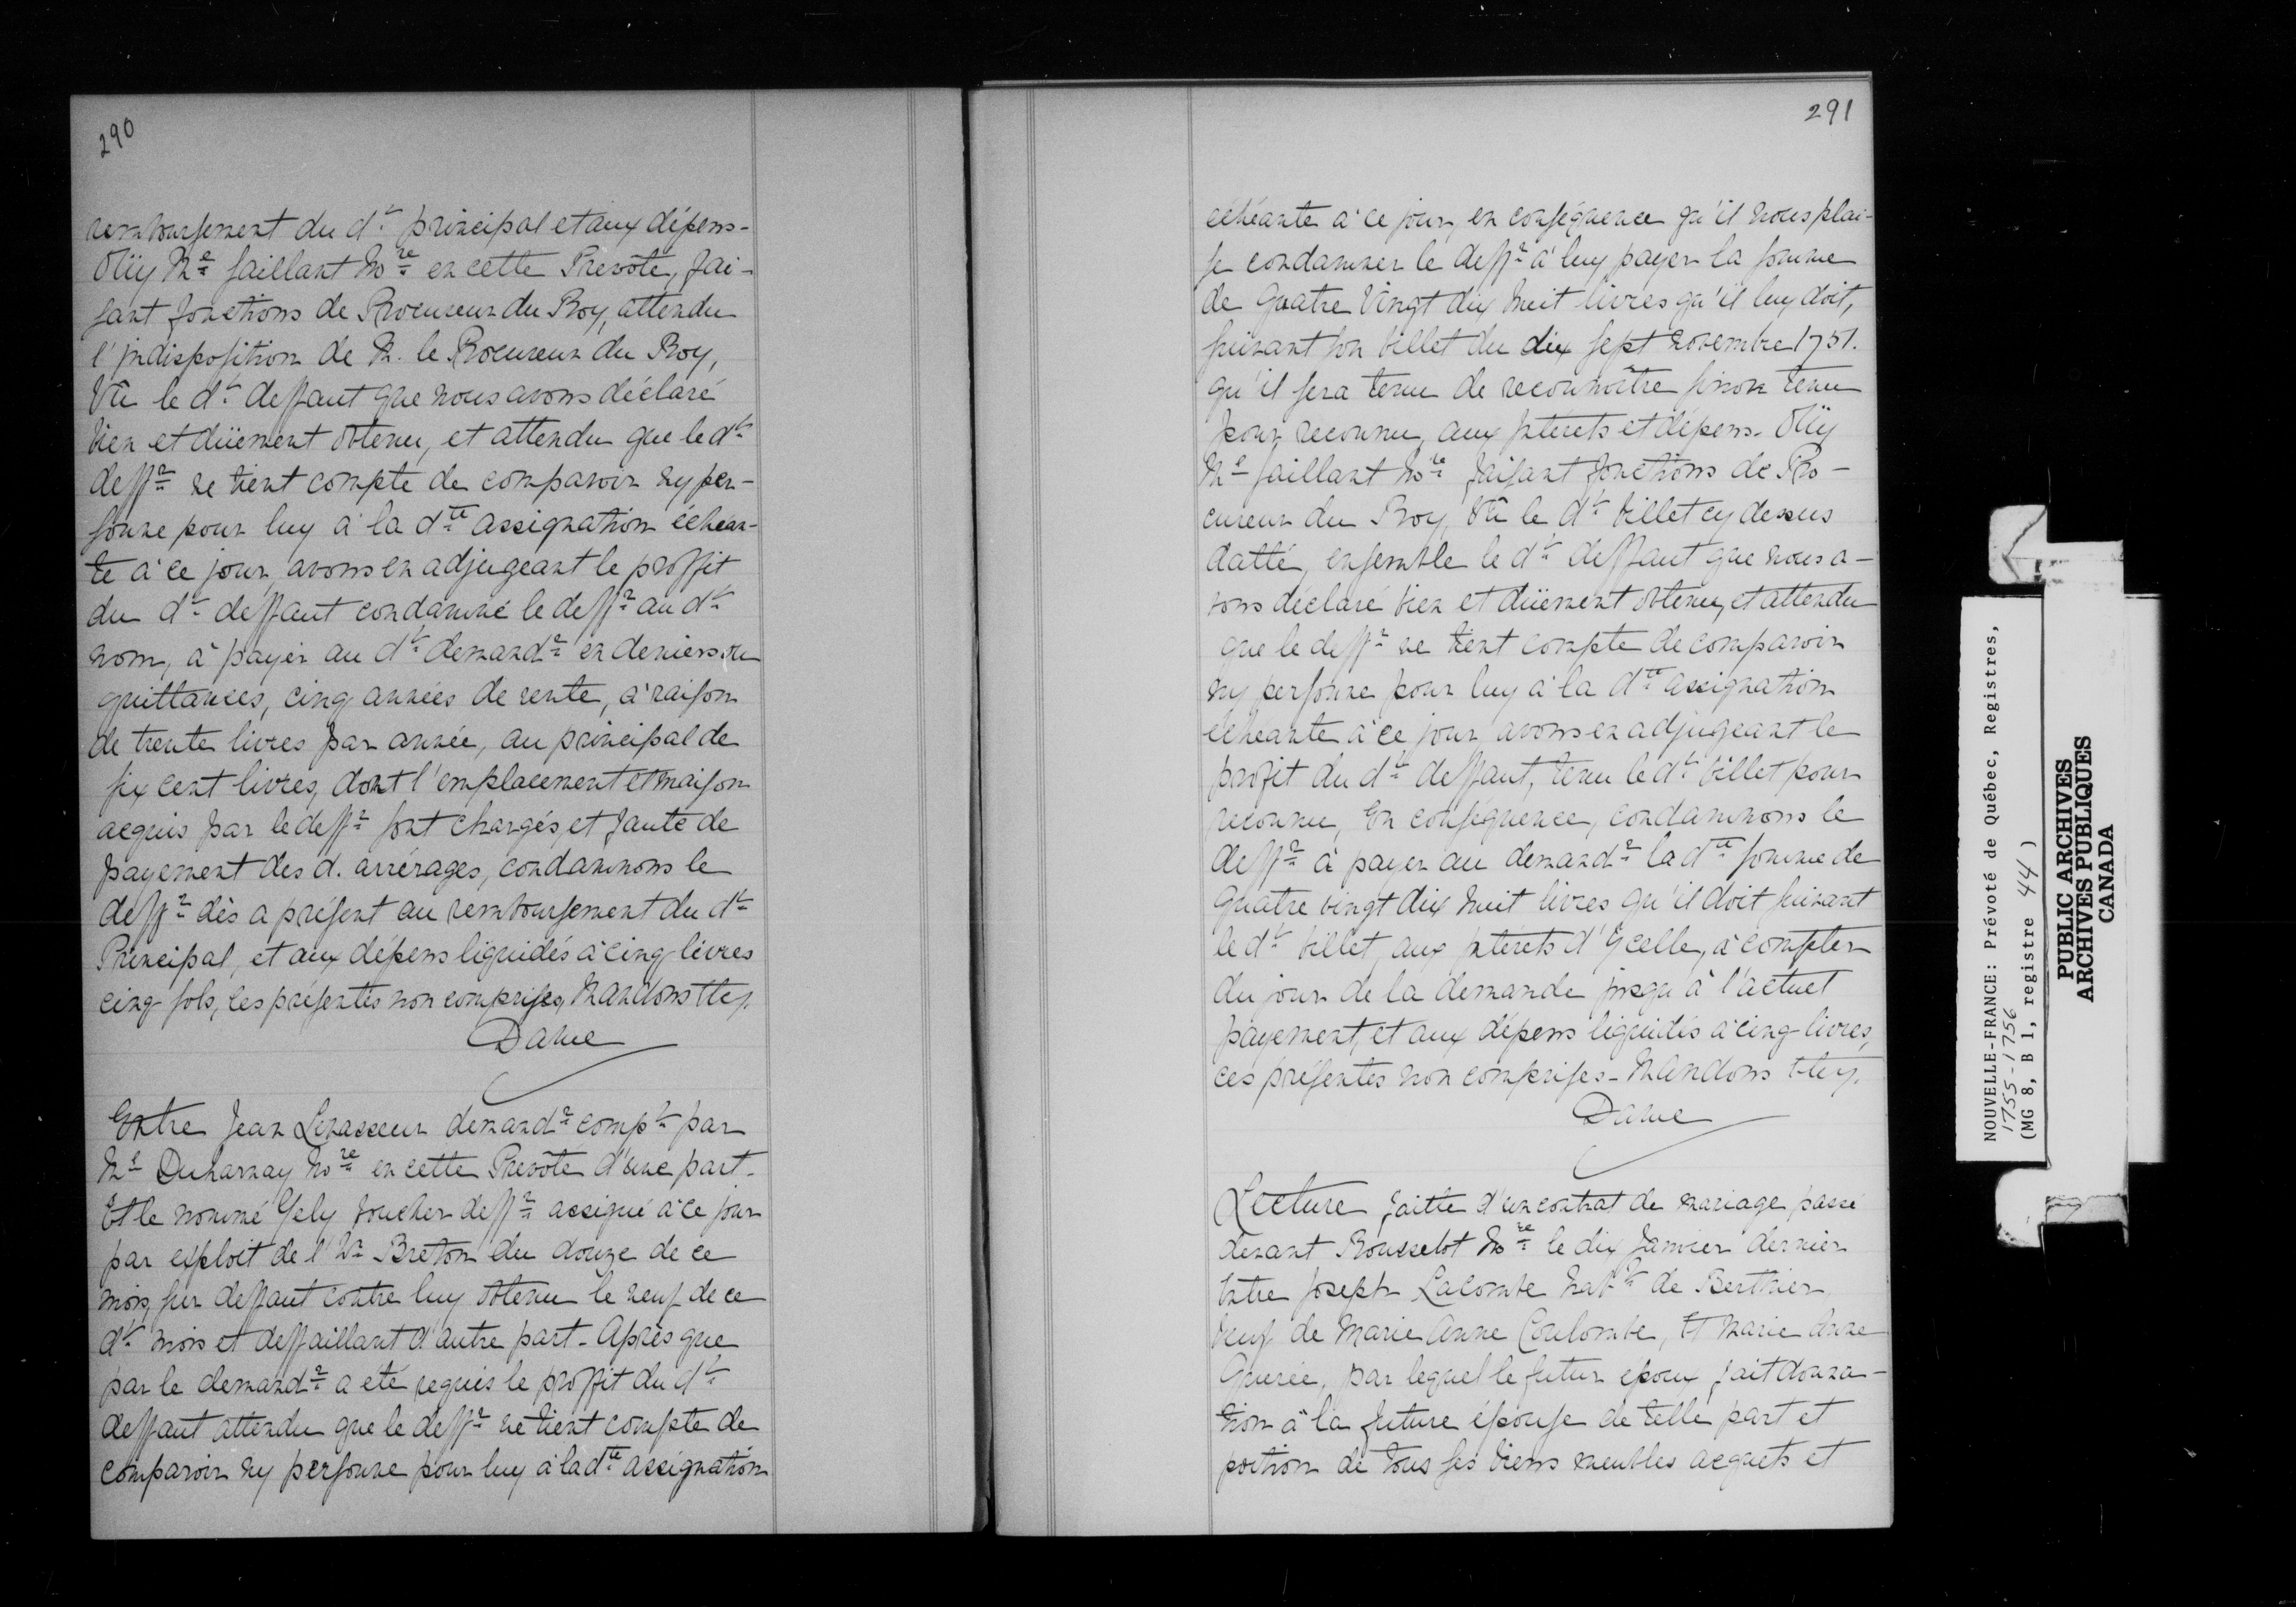 290
remboursement du dt principal et aux dépens-
Oüy Me Saillant Nore en cette Prevôté, fai-
sant fonctions de Procureur du Roy, attendu
l'indisposition de M. le Procureur du Roy,
Vû le dt deffaut que nous avons déclaré
bien et düement obtenu, et attendu que le dt
deffr ne tient compte de comparoir ny per-
sonne pour luy à la dte assignation échean-
te à ce jour, avons en adjugeant le proffit
du dt deffaut condamné le deffr au dt
nom, à payer au dt demandr en deniers ou
quittances, cinq années de rente, à raison
de trente livres par année, au principal de
six cent livres, dont l'emplacement et maison
acquis par le deffr sont chargés, et faute de
payement des d. arrérages, condamnons le
deffr dès a présent au remboursement du dt
Principal, et aux dépens liquidés à cinq livres
cinq sols, ces présentes non comprises, Mandons &c.
Daine
Entre Jean Levasseur demandr compt par
Me Duharnay Nore en cette Prevôté d'une part.
Et le nommé Gely Boucher deffr assigné à ce jour
par exploit de l'hr Breton du douze de ce
mois, sur deffaut contre luy obtenu le neuf de ce
dt mois et deffaillant d'autre part. Après que
par le demandr a eté requis le proffit du dt
deffaut attendu que le deffr ne tient compte de
comparoir ny personne pour luy à la dte assignation
291
echéante à ce jour, en conséquence qu'il nous plai-
se condamner le deffr à luy payer la somme
de Quatre Vingt dix huit livres qu'il luy doit,
suivant son billet du dix sept novembre 1751.
qu'il sera tenu de reconnoitre sinon tenu
pour reconnu, aux jntérets et dépens. Oüy
Me Saillant Nore faisant fonctions de Pro-
cureur du Roy, Vû le dt billet cy dessus
datté, ensemble le dt deffaut que nous a-
vons déclaré bien et düement obtenu, et attendu
que le deffr ne tient compte de comparoir
ny personne pour luy à la dte assignation
echéante à ce jour avons en adjugeant le
profit du dt deffaut, tenu le dt billet pour
reconnu, En conséquence, condamnons le
deffr à payer au demandr la dte somme de
quatre vingt dix huit livres qu'il doit suivant
le dt billet, aux jntérets d'ycelle, à compter
du jour de la demande jusqu'à l'actuel
payement, et aux dépens liquidés à cinq livres,
ces présentes non comprises - Mandons &c.
Daine
Lecture faitte d'un contrat de mariage passé
devant Rousselot Nore le dix Janvier dernier
Entre Joseph Lacombe habt de Berthier
Veuf de Marie Anne Coulombe, Et Marie Anne
par lequel le futur époux fait dona-
tion à la future épouse de telle part et
portion de tous ses biens meubles acquets et
NOUVELLE-FRANCE: Prévoté de Québec, Registres,
1755-1756
(MG 8, B 1, registre 44)
PUBLIC ARCHIVES
ARCHIVES PUBLIQUES
CANADA